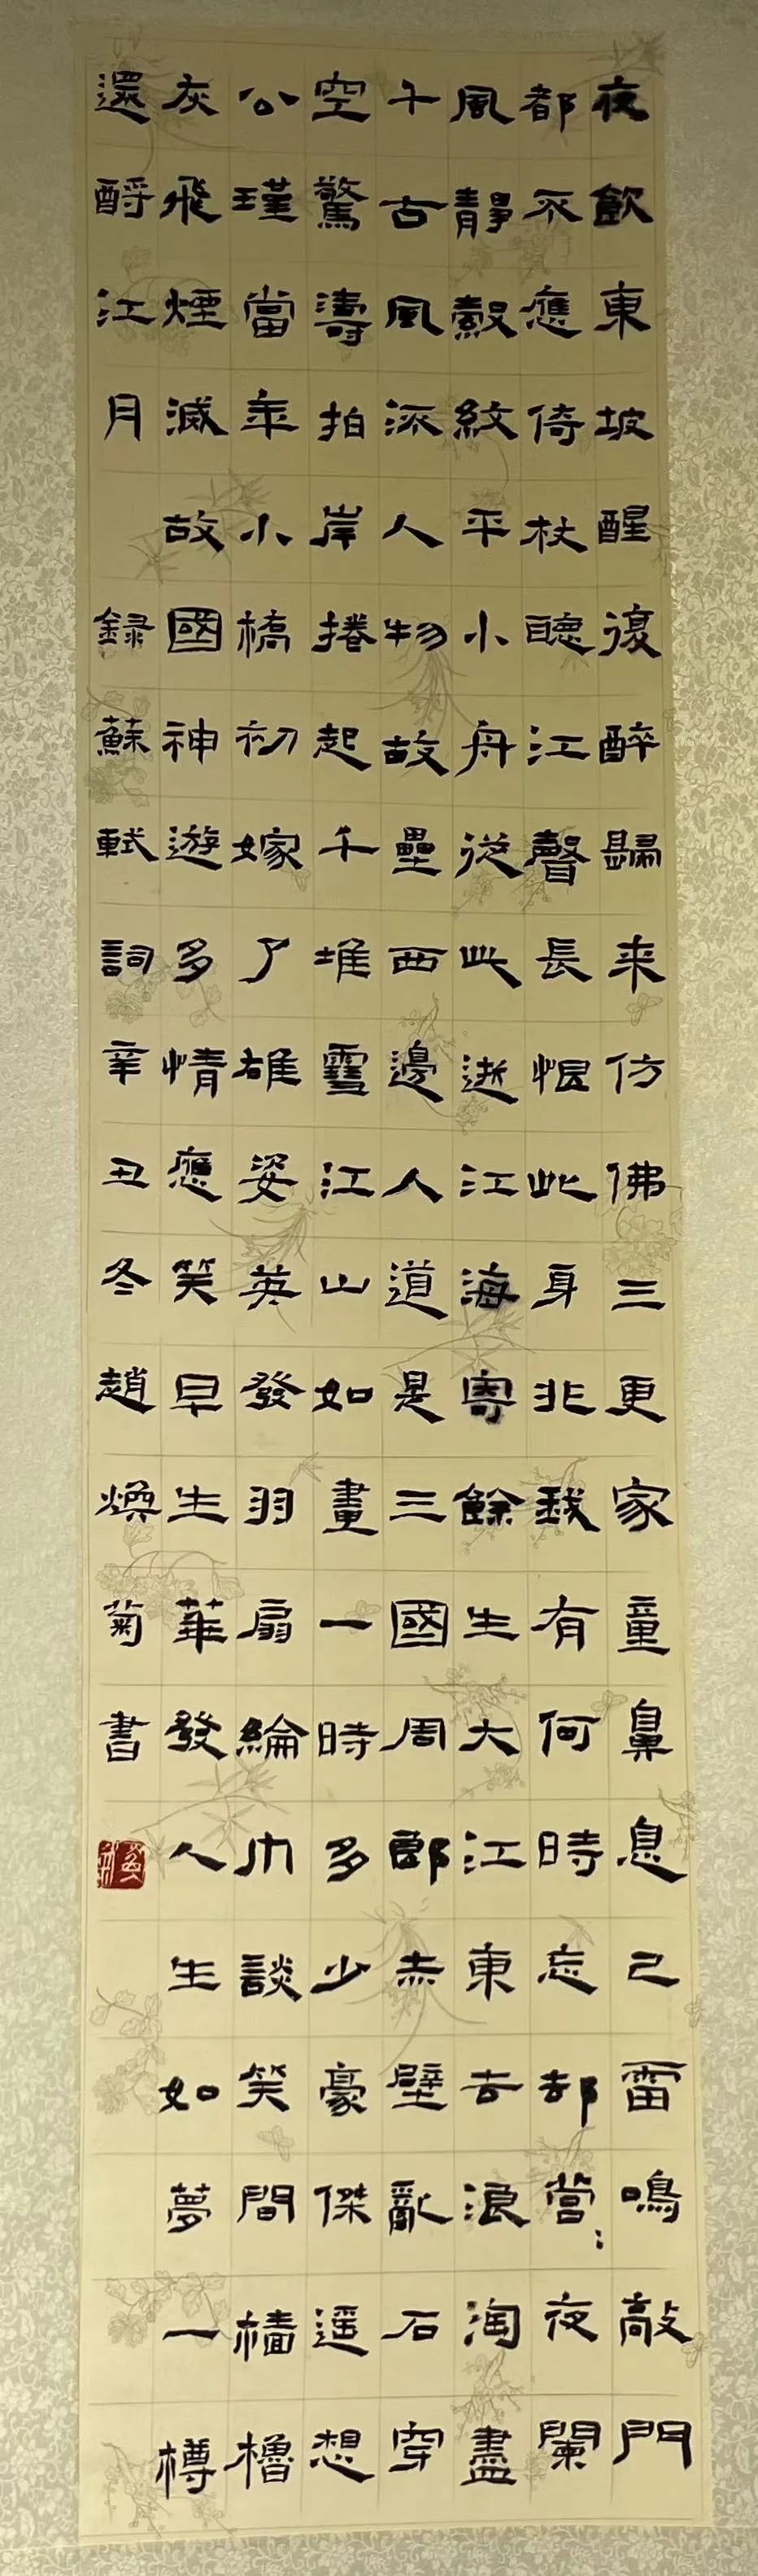 夜飲東坡醒復醉歸来仿佛三更家童鼻息已雷鳴敲門
都不應倚杖聽江聲長恨此身非我有何時忘却營〻夜闌
風靜縠紋平小舟從此逝江海寄餘生大江東去浪淘盡
千古風流人物故壘西邊人道是三國周郎赤壁亂石穿
空驚濤拍岸捲起千堆雪江山如畫一時多少豪傑遥想
公瑾當年小橋初嫁了雄姿英發羽扇綸巾談笑間檣櫓
灰飛煙滅故國神遊多情應笑早生華發人生如夢一樽
還酹江月 録蘇軾詞辛丑冬趙煥菊書